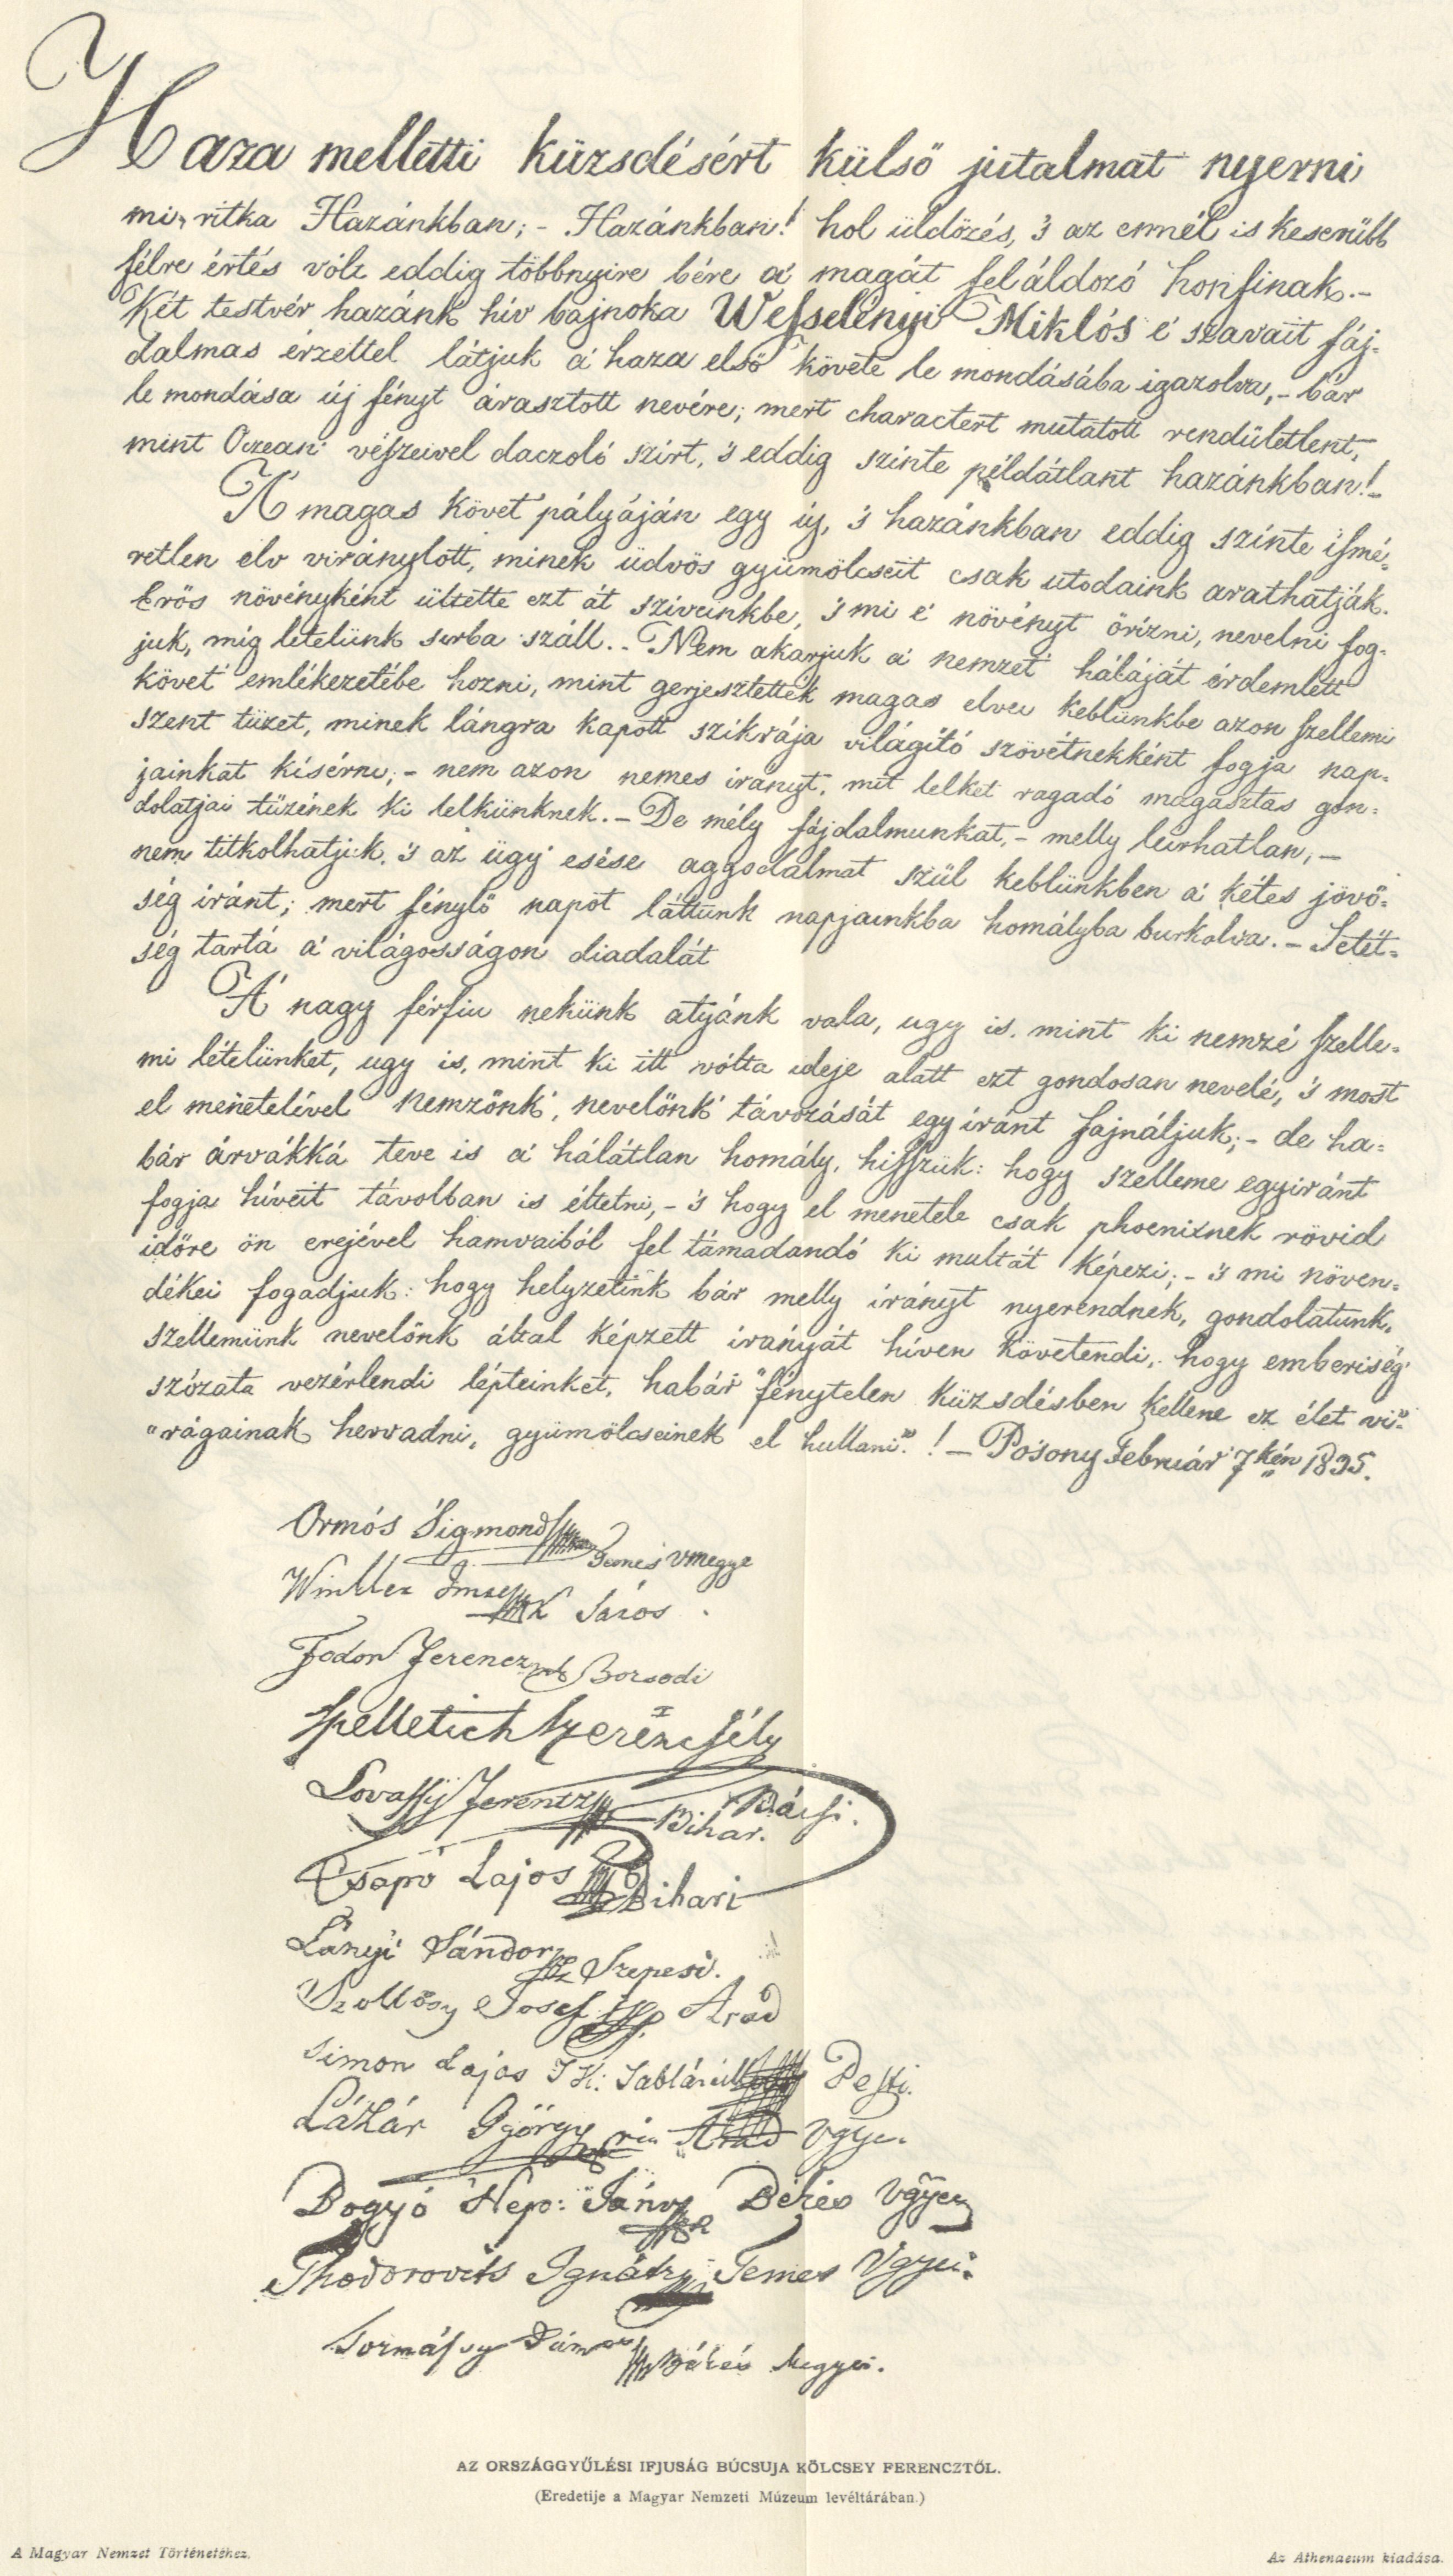 Haza melletti küzsdésért külső jutalmat nyerni
mi ritka Hazánkban; - Hazánkban! hol üldözés, 's az ennél is keserűbb
félre értés vólt eddig többnyire bére a' magát feláldozó honfinak. -
Két testvér hazánk hív bajnoka Wesselényi Miklós e' szavait fáj-
dalmas érzettel látjuk a' haza első követe le mondásába igazolva, - bár
le mondása új fényt árasztott nevére; mert charactert mutatott rendületlent,
mint Oczean' vészeivel daczoló szirt, 's eddig szinte példátlant hazánkban! -
A' magas követ pályáján egy új, 's hazánkban eddig szinte ismé-
retlen elv viránylott, minek üdvös gyümölcseit csak utodaink arathatják.
Erős növényként ültette ezt át sziveinkbe, 's mi e' növényt őrizni, nevelni fog-
juk, míg letelünk sirba száll. - Nem akarjuk a' nemzet' háláját érdemlett
követ' emlékezetébe hozni, mint gerjesztették magas elvei keblünkbe azon szellemi
szent tüzet, minek lángra kapott szikrája világító szövétnekként fogja nap-
jainkat kísérni; - nem azon nemes irányt, mit lelket ragadó magasztas gon-
dolatjai tűzének ki lelkünknek. - De mély fájdalmunkat, - melly leirhatlan, -
nem titkolhatjuk, 's az ügy' esése aggodalmat szül keblünkben a' kétes jövő-
ség iránt; mert fénylő napot láttunk napjainkba homályba burkolva. - Setét-
ség tartá a' világosságon diadalát
A' nagy férfiu nekünk atyánk vala, ugy is, mint ki nemzé szelle-
mi lételünket, ugy is, mint ki itt vólta ideje alatt ezt gondosan nevelé, 's most
el menetelével nemzőnk', nevelőnk' távozását egy iránt sajnáljuk; - de ha-
bár árvákká teve is a' hálátlan homály, hisszük: hogy szelleme egyiránt
fogja híveit távolban is éltetni, - 's hogy el menetele csak phoenixnek rövid
időre ön erejével hamvaiból fel támadandó ki multát képezi; - 's mi növen-
dékei fogadjuk: hogy helyzetink bár melly irányt nyerendnek, gondolatunk,
szellemünk nevelőnk által képzett irányát híven követendi, hogy emberiség'
szózata vezérlendi lépteinket, habár "fénytelen küzsdésben kellene ez élet vi-"
"rágainak hervadni, gyümölcseinek el hullani" ! - Posony Február 7kén 1835.
Ormós Sigmond Temes vmegye
Winkler Imre Sáros.
Fodor Ferencz Borsodi
Spelletich
Bácsi.
Lovassy Ferentz Bihar.
Csapó Lajos Bihari
Lányi Sándor Szepesi.
Szőllősy Josef Arad
Simon Lajos Pesti.
Lázár György Arad vgye.
Bogyó Nep: János Békés vgyei
Thodorovits Ignátz Temes Vgyei.
Tormássy János Békés Megyei.
AZ ORSZÁGGYŰLÉSI IFJUSÁG BÚCSUJA KÖLCSEY FERENCZTŐL.
(Eredetije a Magyar Nemzeti Múzeum levéltárában.)
A Magyar Nemzet Történetéhez.
Az Athenaeum kiadása.